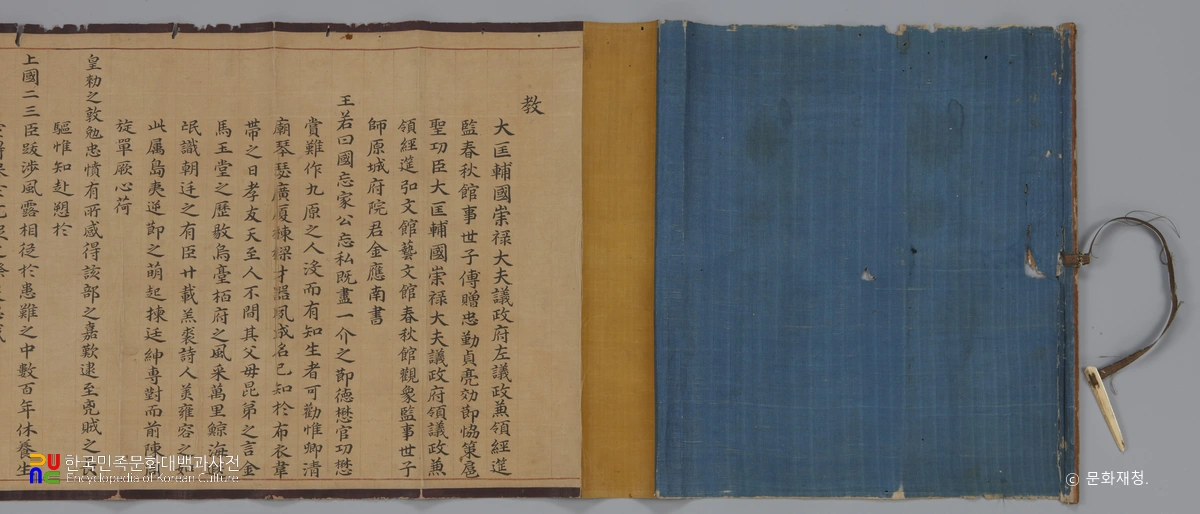 教
大匡輔國崇祿大夫議政府左議政兼領經筵
監春秋館事世子傅贈忠勤貞亮効節恊策扈
聖功臣大匡輔國崇祿大夫議政府領議政兼
領經筵弘文館藝文館春秋館觀象監事世子
師原城府院君金應南書
王若曰國忘家公忘私旣盡一介之節德懋官功懋
賞難作九原之人沒而有知生者可勸惟卿清
廟琴瑟廣廈棟樑才器夙成名已知於布衣韋
帶之日孝友天至人不間其父母昆弟之言金
馬玉堂之歷敭烏臺栢府之風采萬里鯨海
氓識朝廷之有臣廿載羔裘詩人美雍容之
此属島夷逆節之萌起揀廷紳專對而前陳
旋單厥心荷
皇勑之敦勉忠憤有所感得該部之嘉歎逮至兇賊之
驅惟知赴愬於
上國二三臣跋涉風露相從於患難之中數百年休養生
한국민족문화대백과사전
Encyclopedia of Korean Culture
© 문화재청.